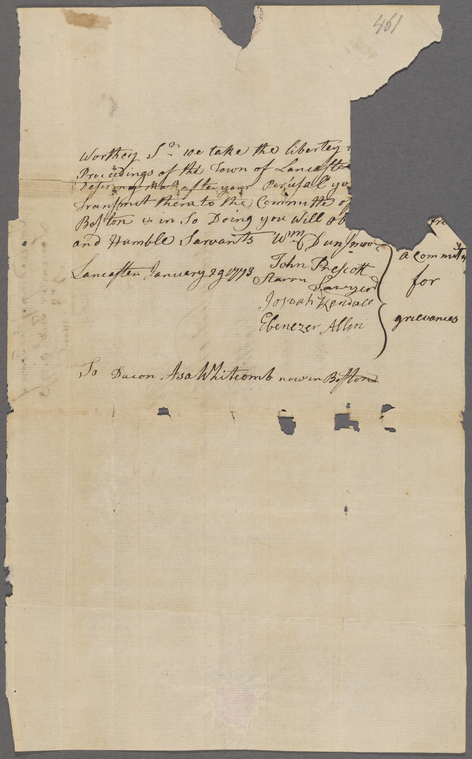 461
Worthey Sr. we take the liberty
Proceedings of the Town of Lancaster
after your Perusal yo
Transmit them to the Committe of
Boston & in So Doing you Will ob
and Humble Sarvants Wm Dunsmoor
Lancaster January 29 1773 John Prescott
Aaron Sawyer
Josiah Kendall
Ebenezer Allen
a commitee
for
grievances
To Deacon Asa Whitcomb now in Boston